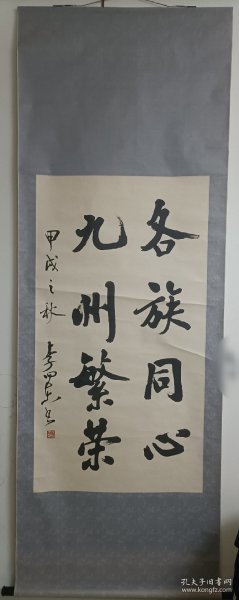 各族同心
九州繁荣
甲戌之秋
孔夫子旧书网